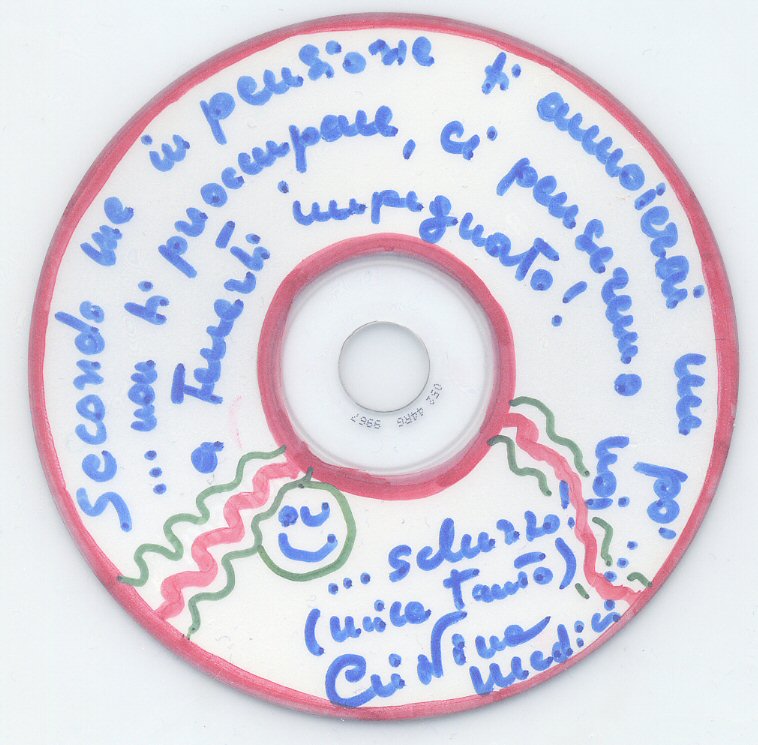 Secondo me in pensione ti annoierai un po'...
... non ti preoccupare, ci penseremo noi
a tenerti impegnato!
... scherzo!
(mica tanto)
Cristina
Medici
052 44RG 9967